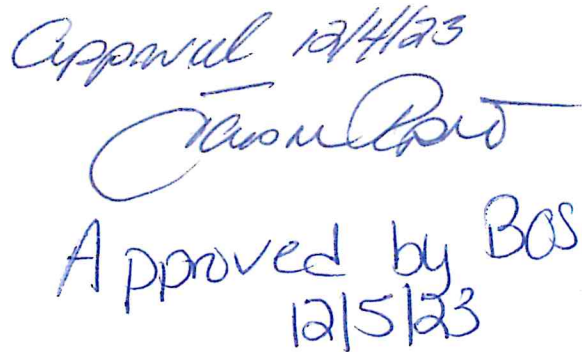 Approved 12/4/23
Approved by BOS
12/5/23